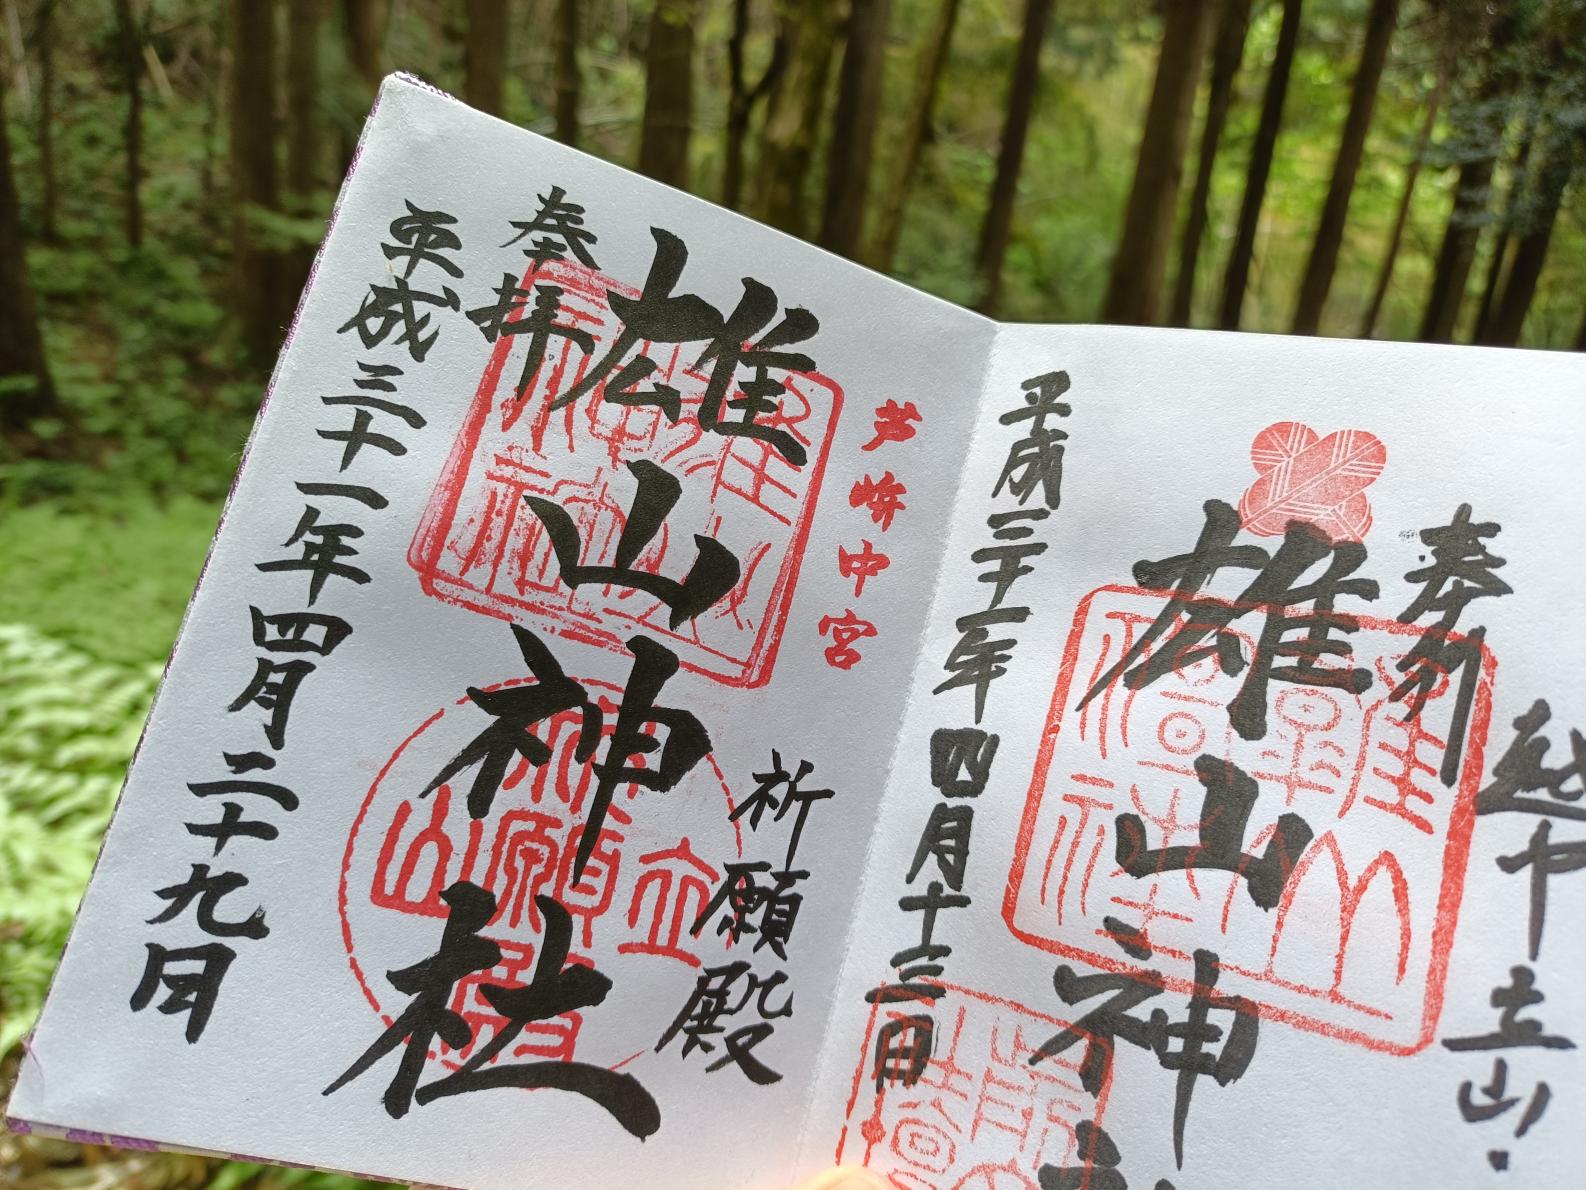 越中立山・
奉拝
雄山神社
平成三十一年四月十三日
芦峅中宮
祈願殿
奉拝
雄山神社
平成三十一年四月二十九日